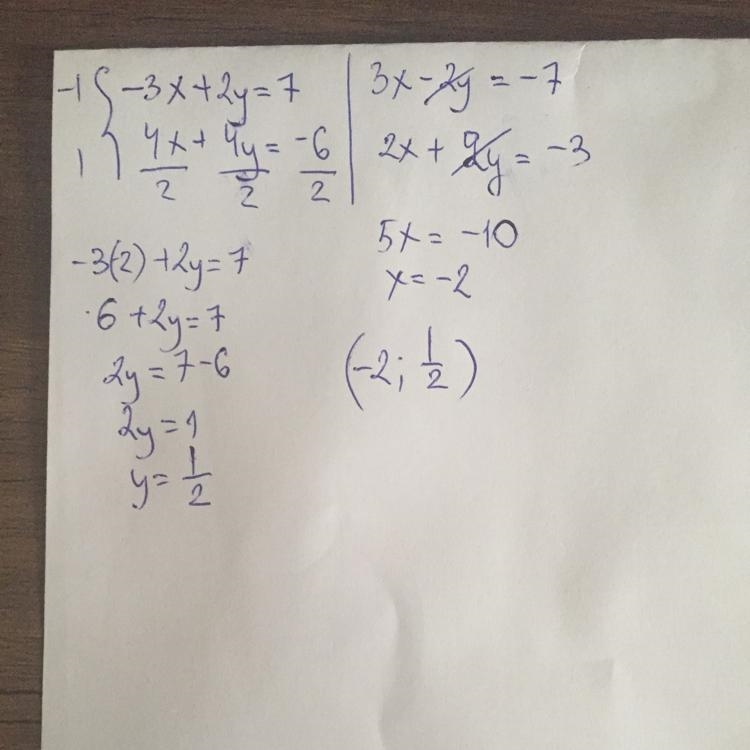 -1 { -3x + 2y = 7
1 4x/2 + 4y/2 = -6/2
-3(2) + 2y = 7
6 + 2y = 7
2y = 7 - 6
2y = 1
y = 1/2
3x - 2y = -7
2x + 2y = -3
5x = -10
x = -2
(-2; 1/2)